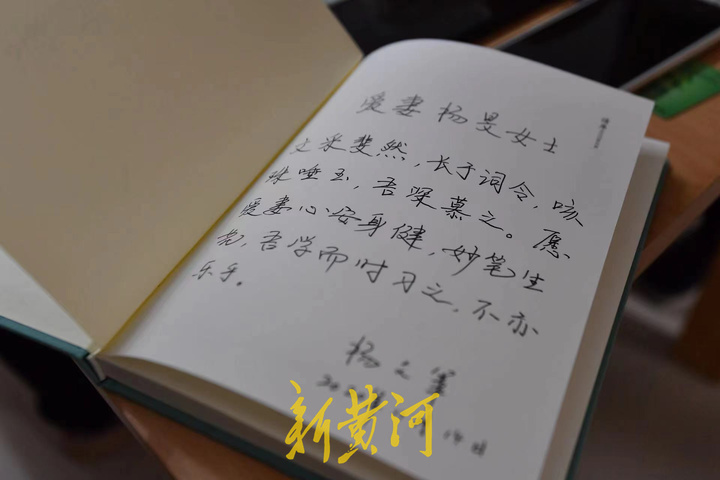 爱妻 杨旻女士
文采斐然，长于词令，咳
珠唾玉，吾深慕之。愿
爱妻心安身健，妙笔生
花，吾学而时习之，不亦
乐乎。
杨文
新黄河